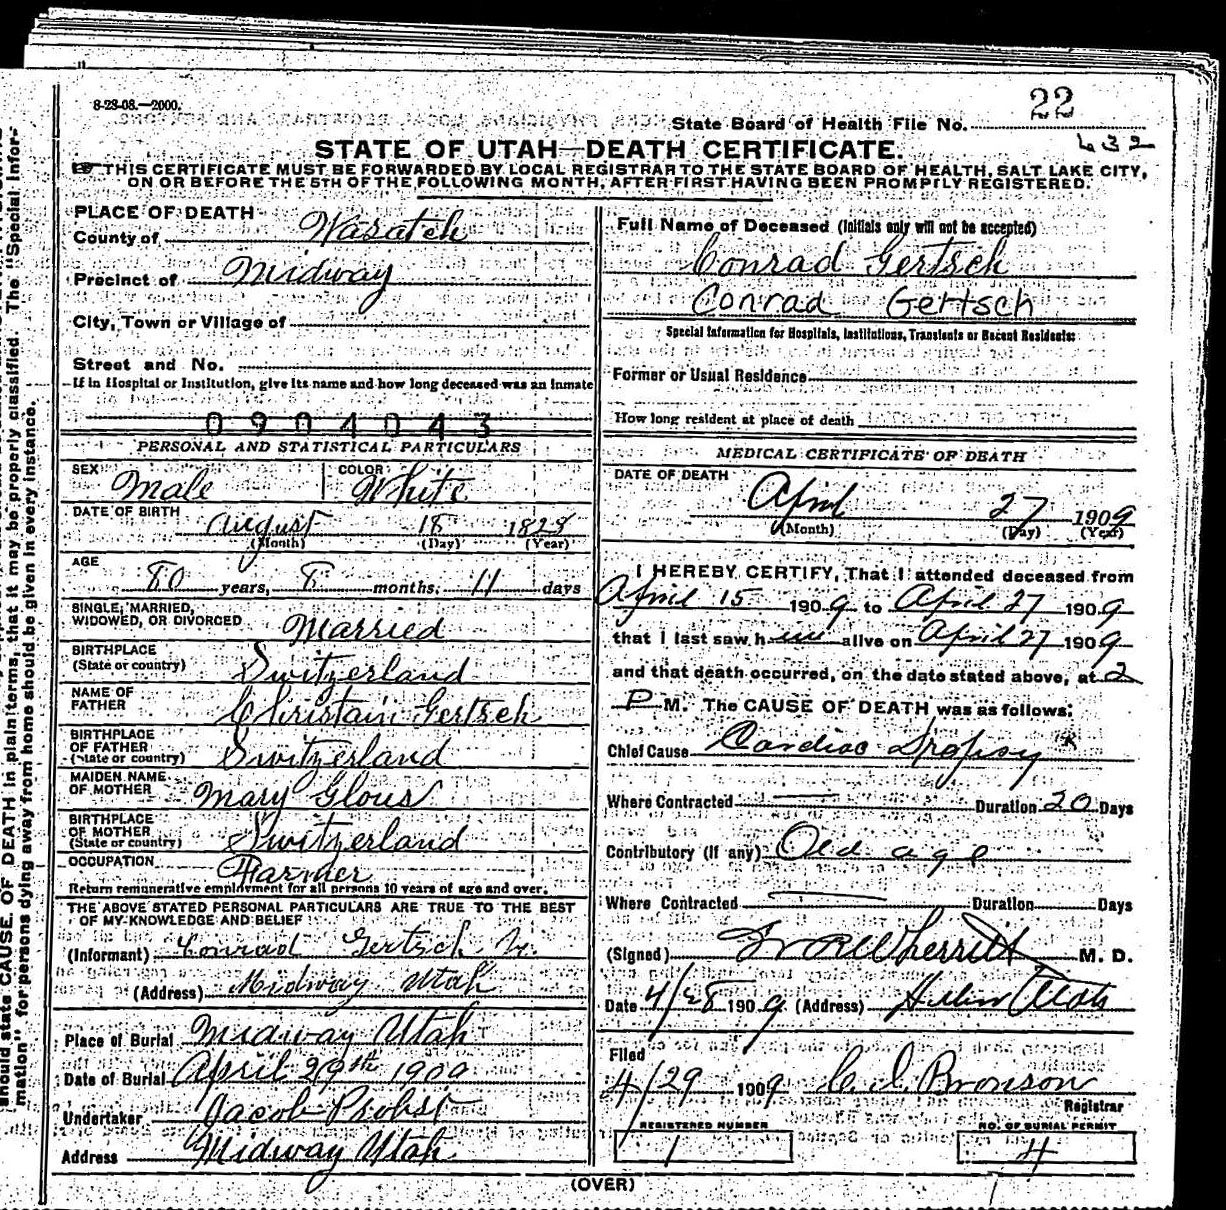 8-28-08.—2000.
22
State Board of Health File No.
632
STATE OF UTAH—DEATH CERTIFICATE.
THIS CERTIFICATE MUST BE FORWARDED BY LOCAL REGISTRAR TO THE STATE BOARD OF HEALTH, SALT LAKE CITY,
ON OR BEFORE THE 5TH OF THE FOLLOWING MONTH, AFTER FIRST HAVING BEEN PROMPTLY REGISTERED.
PLACE OF DEATH
County of Wasatch
Precinct of Midway
City, Town or Village of
Street and No.
If in Hospital or Institution, give its name and how long deceased was an inmate
0904043
PERSONAL AND STATISTICAL PARTICULARS
SEX Male COLOR White
DATE OF BIRTH August 18 1828
(Month) (Day) (Year)
AGE 80 years, 8 months, 11 days
SINGLE, MARRIED,
WIDOWED, OR DIVORCED Married
BIRTHPLACE
(State or country) Switzerland
NAME OF
FATHER Christain Gertsch
BIRTHPLACE
OF FATHER
(State or country) Switzerland
MAIDEN NAME
OF MOTHER Mary Glous
BIRTHPLACE
OF MOTHER
(State or country) Switzerland
OCCUPATION Farmer
Return remunerative employment for all persons 10 years of age and over.
THE ABOVE STATED PERSONAL PARTICULARS ARE TRUE TO THE BEST
OF MY KNOWLEDGE AND BELIEF
(Informant) Conrad Gertsch Jr.
(Address) Midway Utah
Place of Burial Midway Utah
Date of Burial April 29th 1909
Undertaker Jacob Probst
Address Midway Utah
Full Name of Deceased (Initials only will not be accepted)
Conrad Gertsch
Conrad Gertsch
Special Information for Hospitals, Institutions, Transients or Recent Residents:
Former or Usual Residence
How long resident at place of death
MEDICAL CERTIFICATE OF DEATH
DATE OF DEATH
April 27 1909
(Month) (Day) (Year)
I HEREBY CERTIFY, That I attended deceased from
April 15 1909 to April 27 1909
that I last saw him alive on April 27 1909
and that death occurred, on the date stated above, at 2
P M. The CAUSE OF DEATH was as follows:
Chief Cause Cardiac Dropsy
Where Contracted Duration 20 Days
Contributory (if any) Old age
Where Contracted Duration Days
(Signed) M. D.
Date 4/28 1909 (Address)
Filed
4/29 1909 C. I. Bronson
Registrar
REGISTERED NUMBER
1
NO. OF BURIAL PERMIT
4
(OVER)
should state CAUSE OF DEATH in plain terms, that it may be properly classified. The "Special Infor-
mation" for persons dying away from home should be given in every instance.